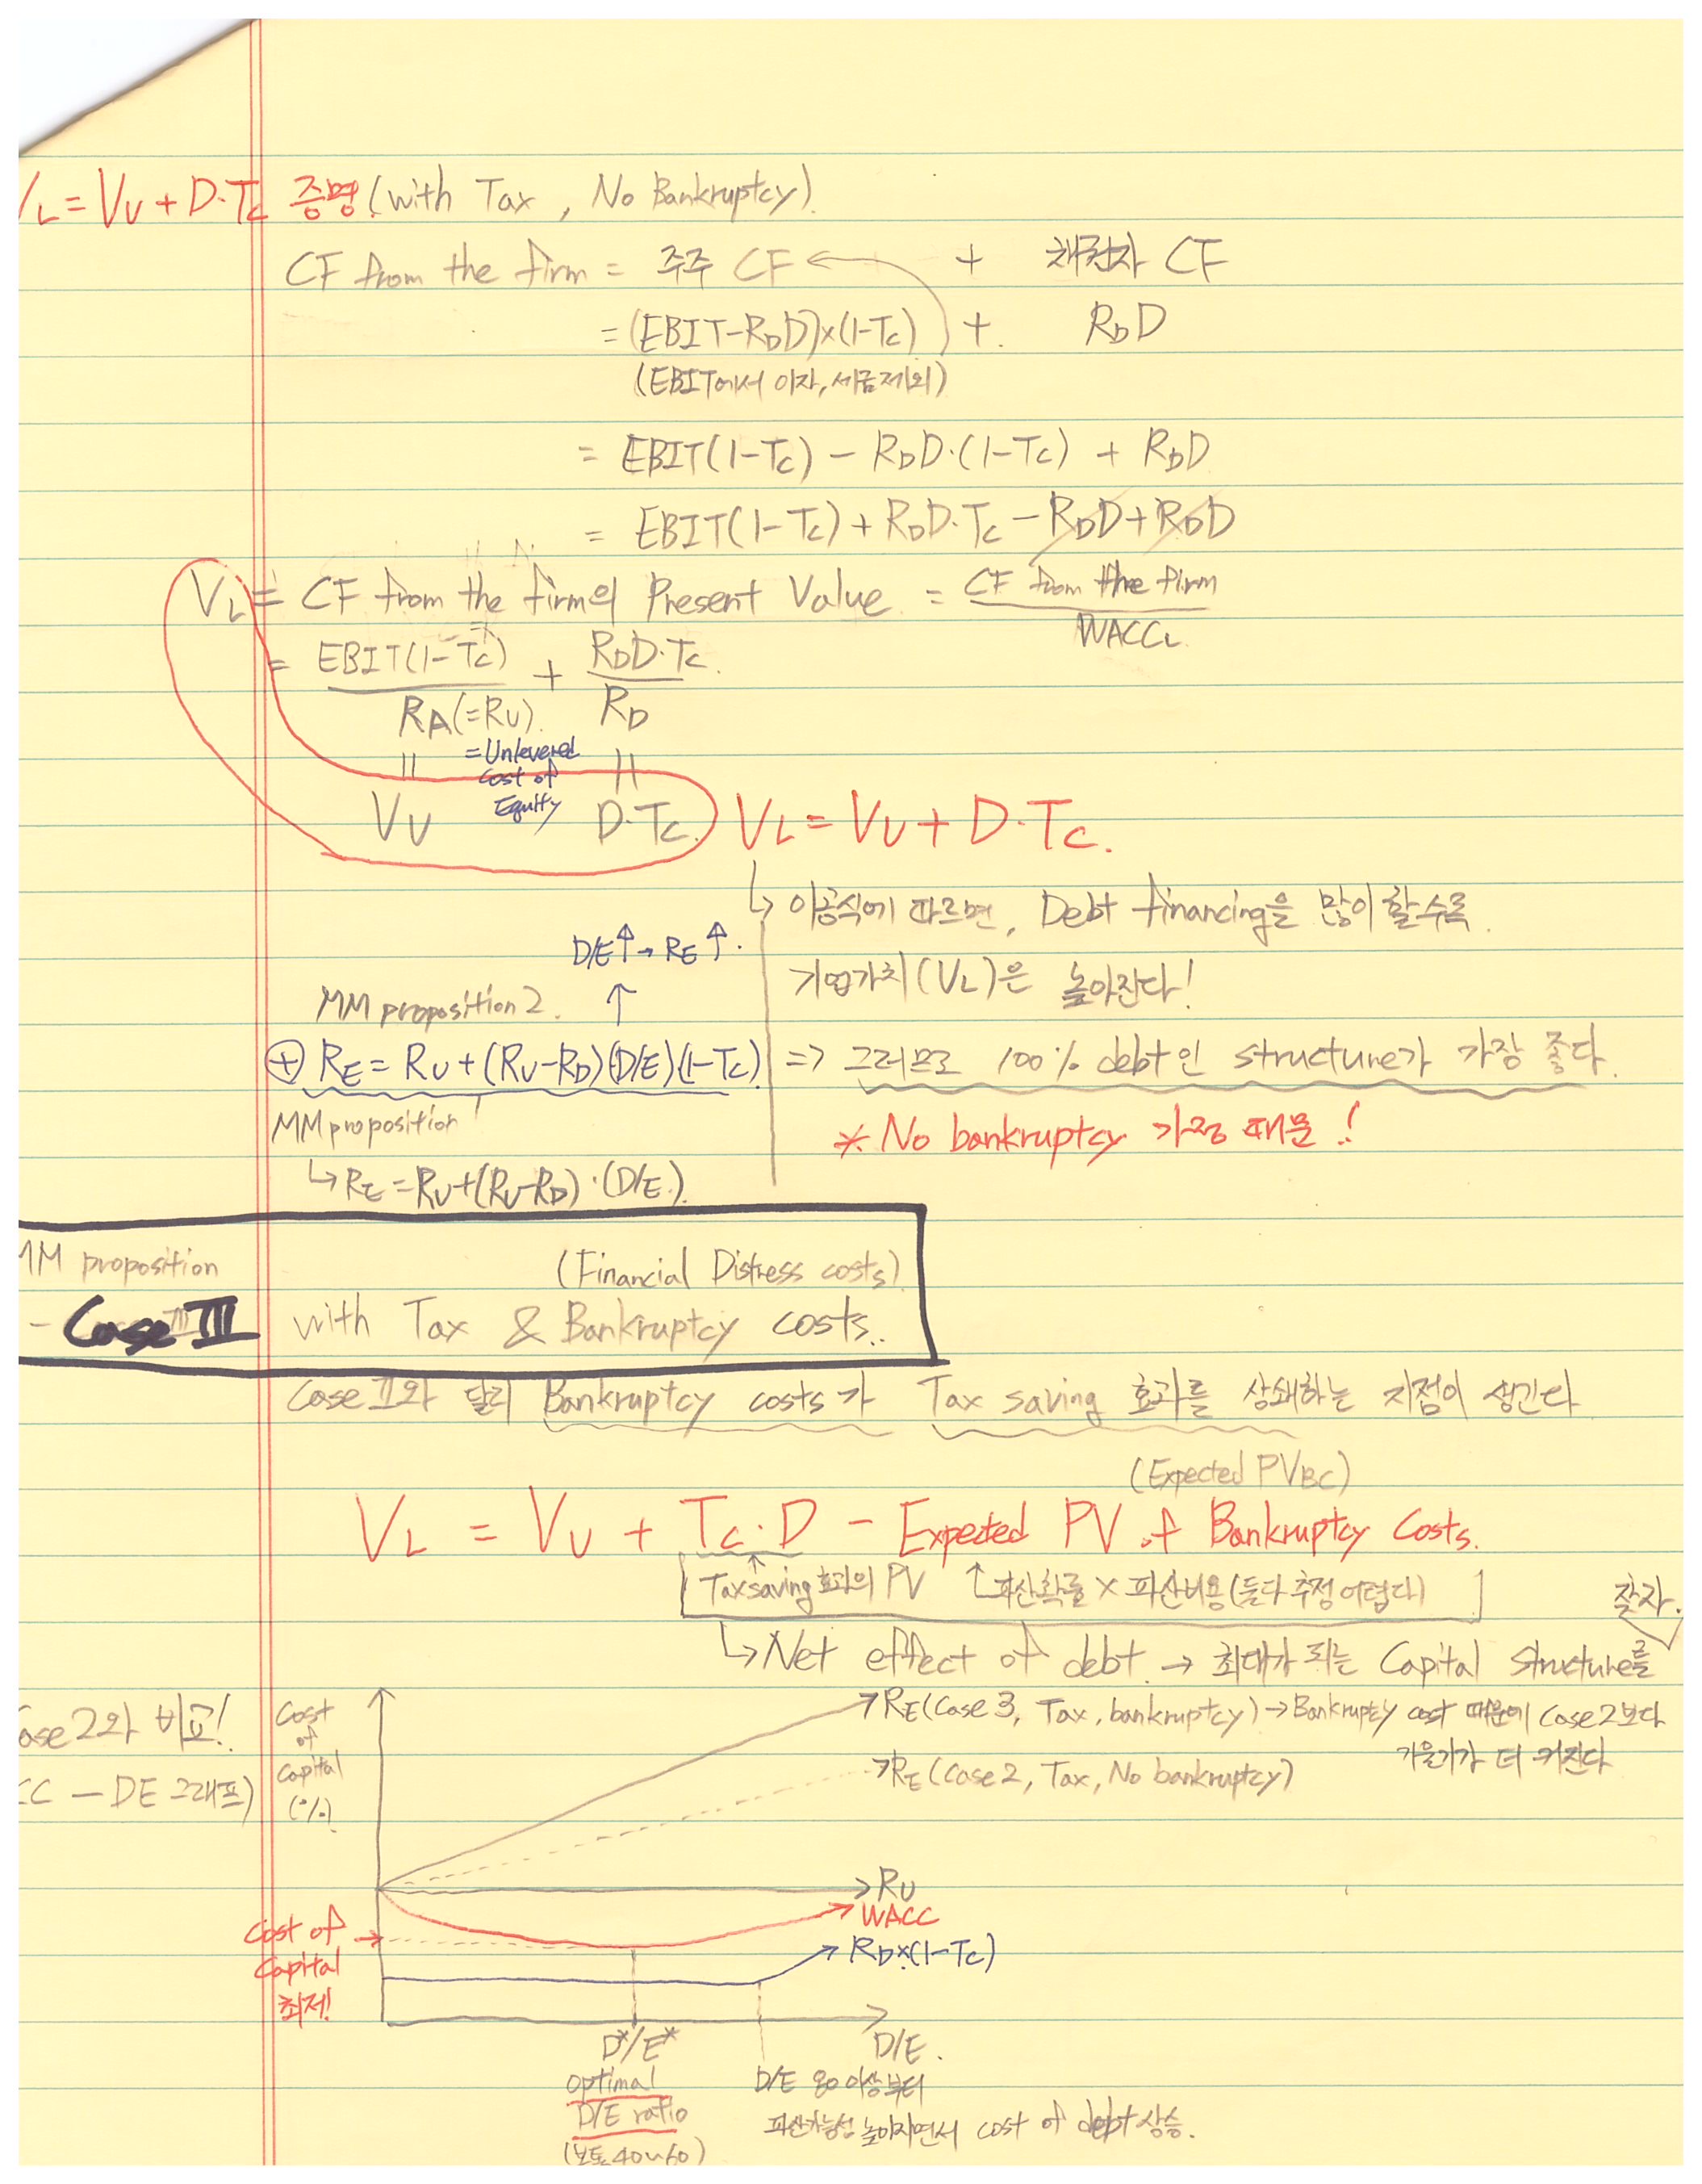 V_L = V_U + D·T_C 증명! (with Tax, No Bankruptcy).
CF from the firm = 주주 CF + 채권자 CF
= (EBIT-R_D D)×(1-T_C) + R_D D
(EBIT에서 이자, 세금 제외)
= EBIT(1-T_C) - R_D D·(1-T_C) + R_D D
= EBIT(1-T_C) + R_D D·T_C - R_D D + R_D D
V_L = CF from the firm의 Present Value = CF from the firm / WACC_L
= EBIT(1-T_C) / R_A(=R_U) + R_D D·T_C / R_D
= Unlevered
Cost of
Equity
V_U D·T_C V_L = V_U + D·T_C.
↳ 이공식에 따르면, Debt financing을 많이 할수록
D/E↑ → R_E↑.
기업가치(V_L)은 높아진다!
MM proposition 2. ↑
⊕ R_E = R_U + (R_U-R_D)(D/E)(1-T_C) => 그러므로 100% debt인 structure가 가장 좋다.
MM proposition 1
* No bankruptcy 가정 때문!
↳ R_E = R_U + (R_U-R_D)·(D/E).
MM proposition (Financial Distress costs)
- Case III with Tax & Bankruptcy costs..
Case II와 달리 Bankruptcy costs가 Tax saving 효과를 상쇄하는 지점이 생긴다
(Expected PV_BC)
V_L = V_U + T_C·D - Expected PV of Bankruptcy Costs.
Tax saving 효과의 PV ↑ 파산확률 × 파산비용 (둘다 추정 어렵다)
찾자.
↳ Net effect of debt. → 최대가 되는 Capital structure를
Case 2와 비교!
CC - DE 그래프)
Cost
of
Capital
(%)
R_E (Case 3, Tax, bankruptcy) → Bankruptcy cost 때문에 Case 2보다
기울기가 더 커진다
R_E (Case 2, Tax, No bankruptcy)
R_U
WACC
R_D×(1-T_C)
Cost of
Capital
최저!
D*/E* D/E.
optimal
D/E ratio
(보통 40~60)
D/E 80 이상부터
파산가능성 높아지면서 cost of debt 상승.